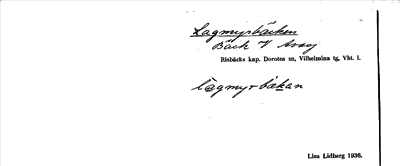 Lagmyrbäcken
Bäck V Avasj
Risbäcks kap. Dorotea sn, Vilhelmina tg, Vbt. l.
lagmyrbäkan
Lisa Lidberg 1936.